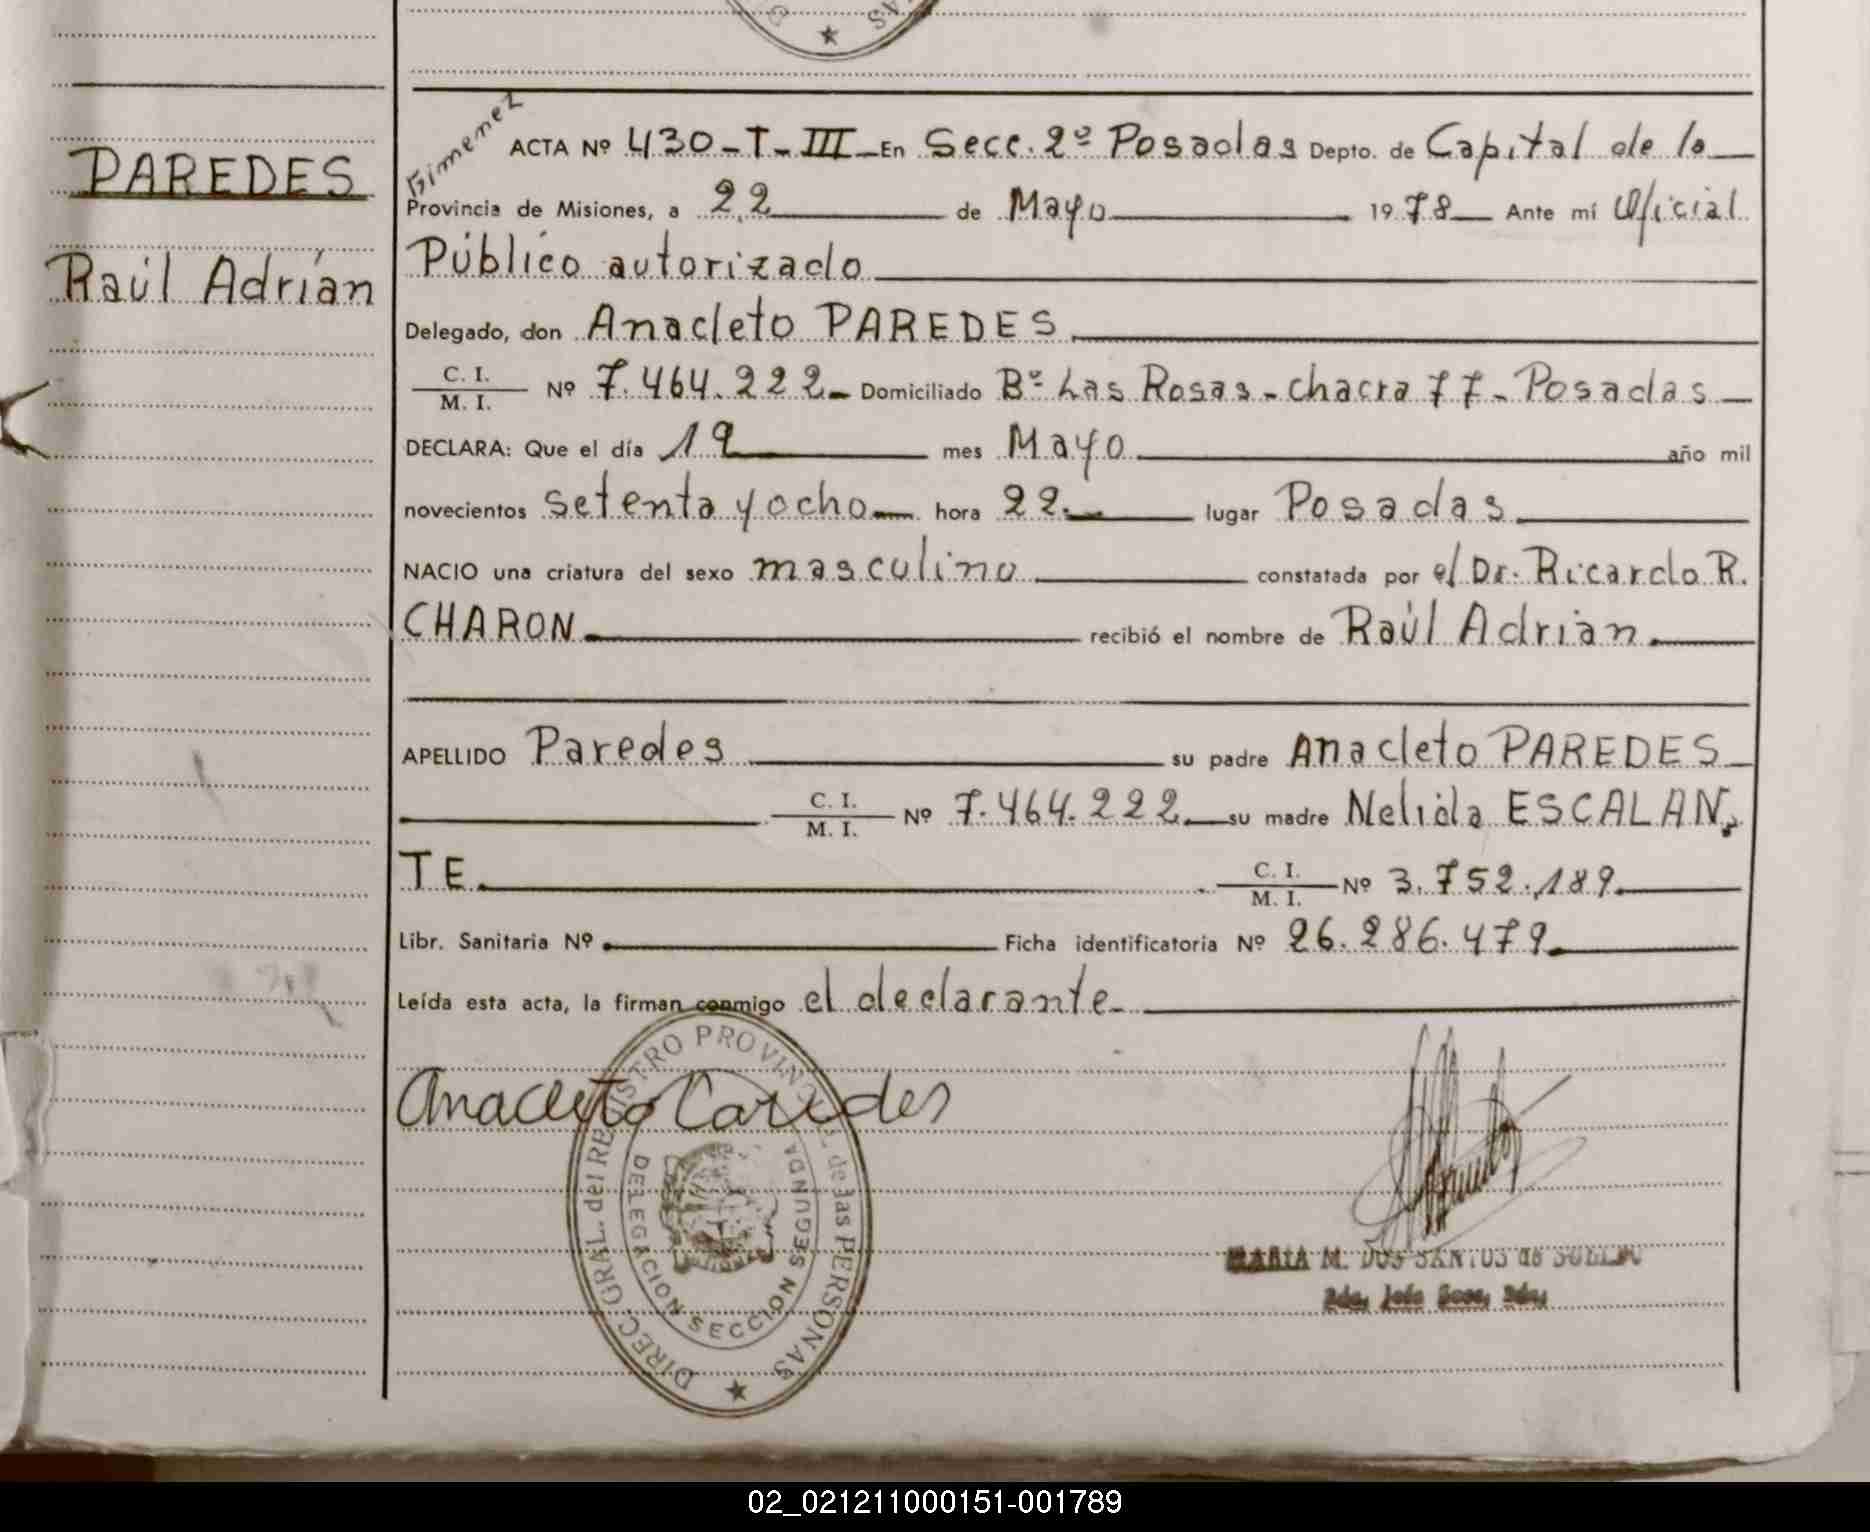 PAREDES
Raúl Adrían
Gimenez
ACTA Nº 430-T-III-En Secc. 2º Posadas Depto. de Capital de la
Provincia de Misiones, a 22 de Mayo 1978 Ante mí Oficial
Público autorizado
Delegado, don Anacleto PAREDES
C. I.
M. I. Nº 7.464.222- Domiciliado Bº Las Rosas - chacra 77 - Posadas
DECLARA: Que el día 19 mes Mayo año mil
novecientos setenta y ocho hora 22 lugar Posadas
NACIO una criatura del sexo masculino constatada por el Dr. Ricardo R.
CHARON recibió el nombre de Raúl Adrian
APELLIDO Paredes su padre Anacleto PAREDES
C. I.
M. I. Nº 7.464.222 su madre Nelida ESCALAN,
TE C. I.
M. I. Nº 3.752.189
Libr. Sanitaria Nº Ficha identificatoria Nº 26.286.479
Leída esta acta, la firman conmigo el declarante
Anacleto Paredes
DIREC. GRAL. del REGISTRO PROVINCIAL de las PERSONAS
DELEGACION SECCION SEGUNDA
MARIA M. DOS SANTOS de
02_021211000151-001789